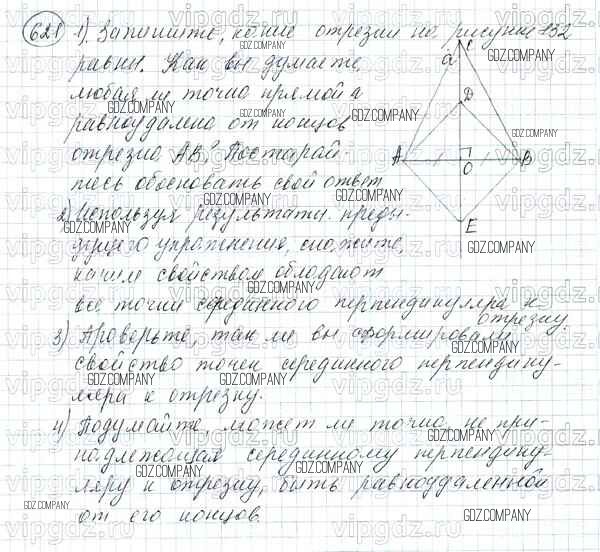 621 1). Запишите, какие отрезки на рисунке 152
равны. Как вы думаете,
любая ли точка прямой a
равноудалена от концов
отрезка AB? Постарай-
тесь обосновать свой ответ
2) Используя результаты преды-
дущего упражнения, скажите,
каким свойством обладают
все точки серединного перпендикуляра к
отрезку.
3) Проверьте, так ли вы сформировали
свойство точек серединного перпендику-
ляра к отрезку.
4) Подумайте, может ли точка, не при-
надлежащая серединному перпендику-
ляру к отрезку, быть равноудаленной
от его концов.
C
a
D
A
B
O
E
GDZ.COMPANY
vipgdz.ru